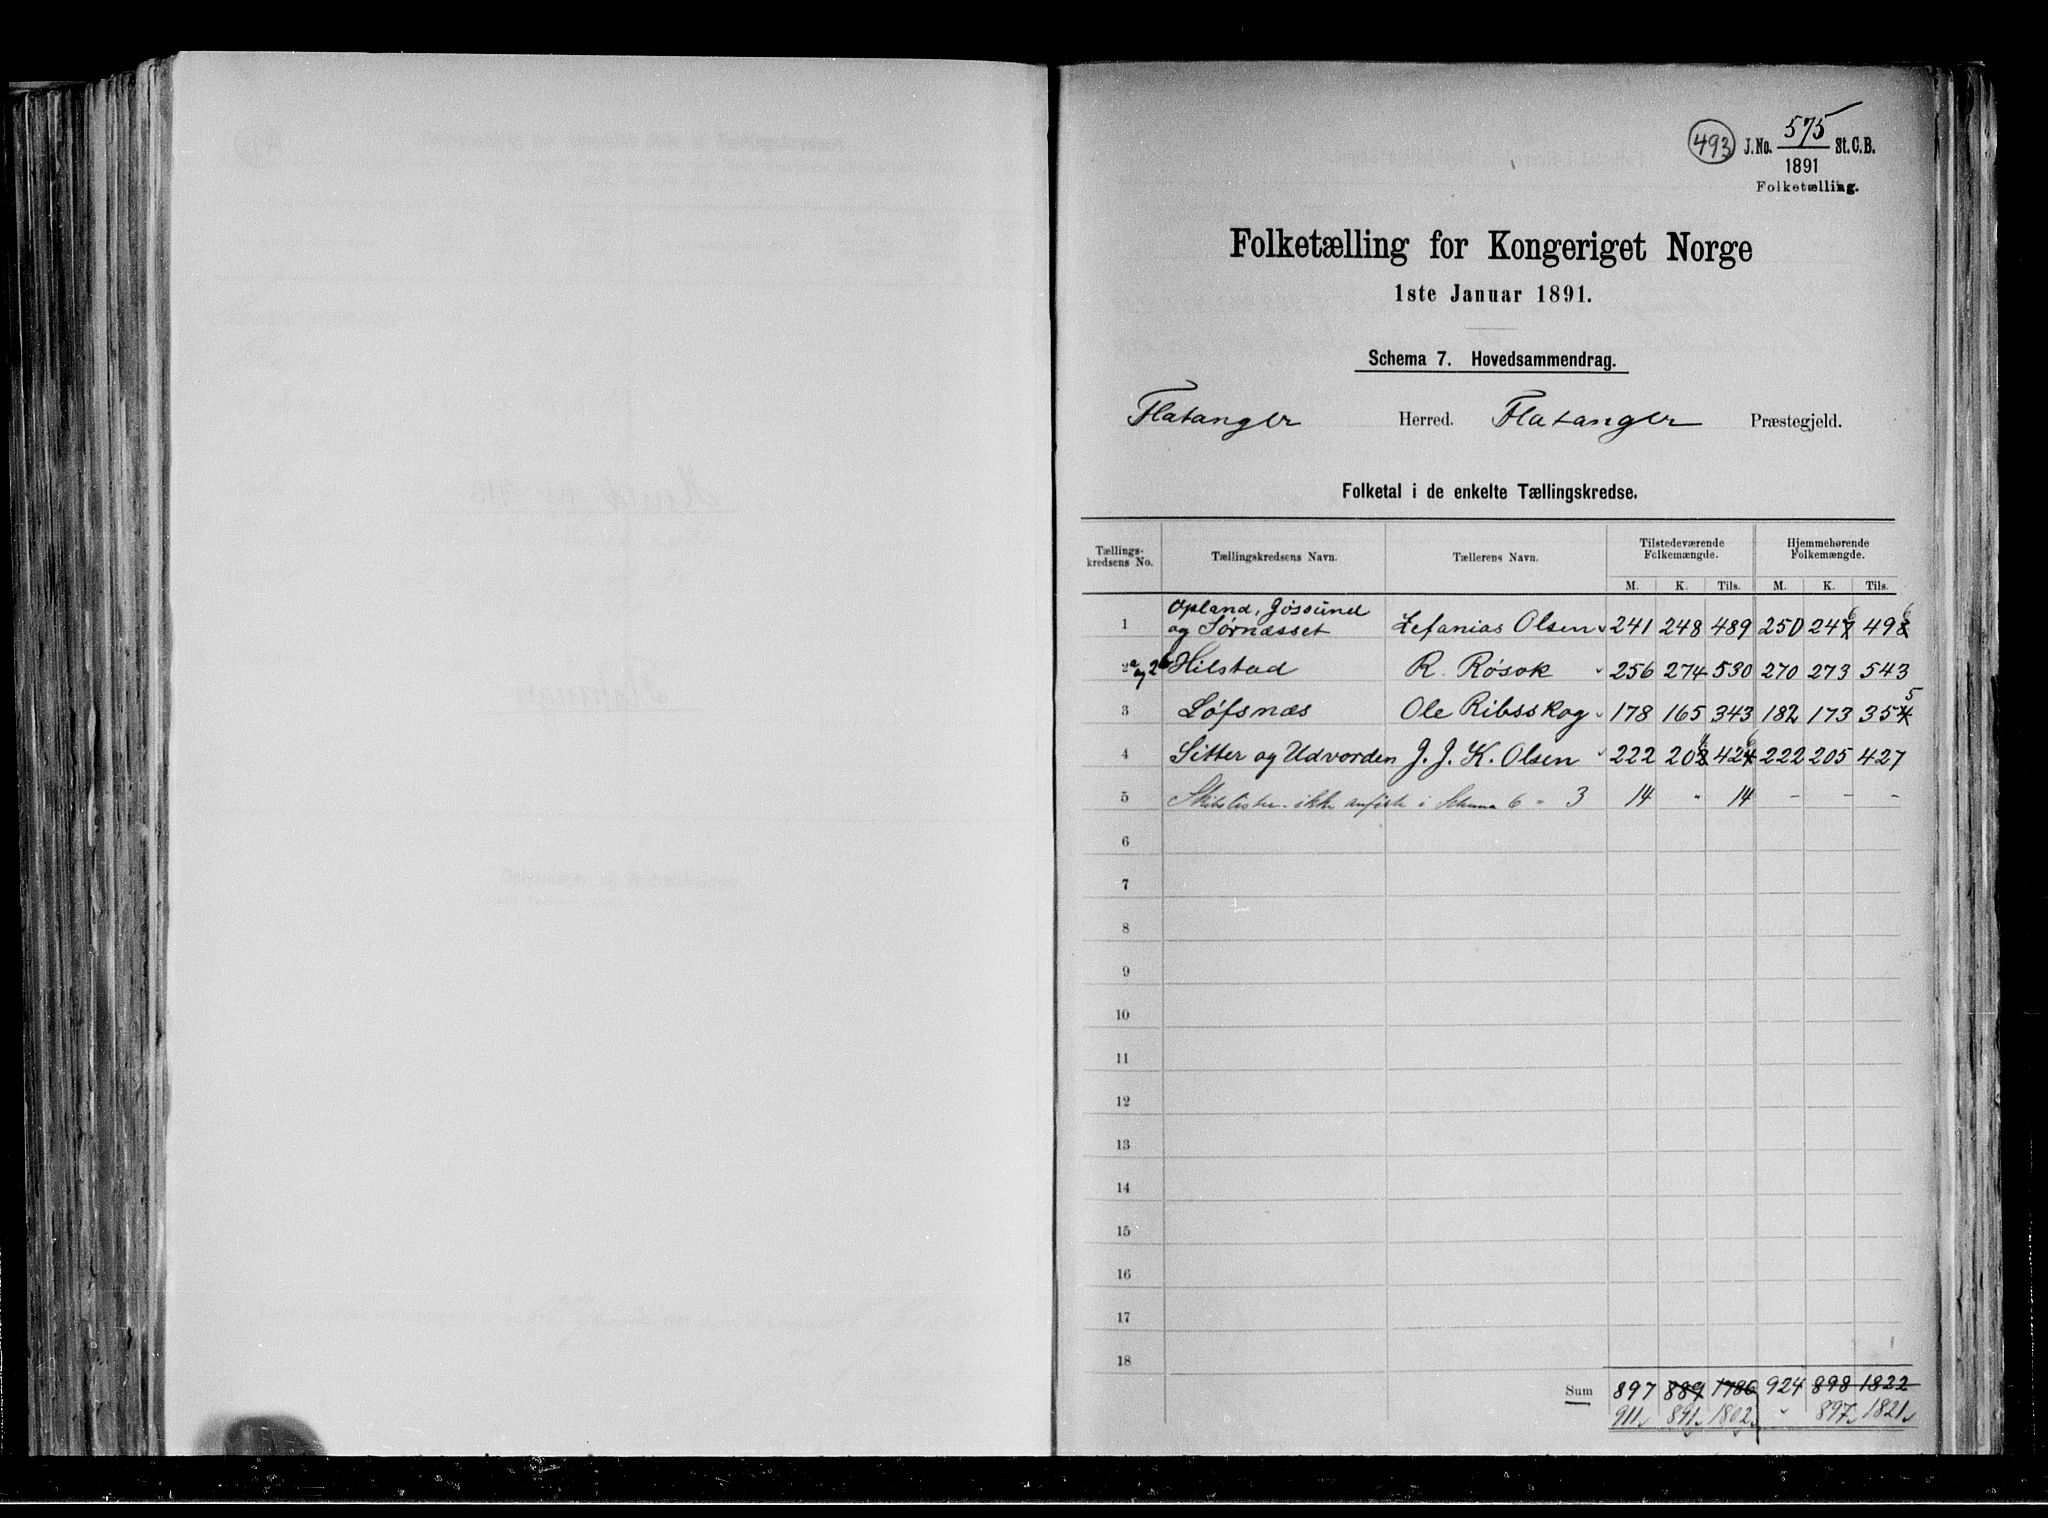 493 J. No. 575 St. C. B.
1891
Folketælling.
Folketælling for Kongeriget Norge
1ste Januar 1891.
Schema 7. Hovedsammendrag.
Flatanger Herred. Flatanger Præstegjeld.
Folketal i de enkelte Tællingskredse.
Tællingskredsens No. Tællingskredsens Navn. Tællerens Navn. Tilstedeværende Folkemængde. Hjemmehørende Folkemængde.
M. K. Tils. M. K. Tils.
Opland, Jøssund
1 og Sørnæsset Zefanias Olsen 241 248 489 250 246 496
2a og 2b Hilstad R. Røsok 256 274 530 270 273 543
3 Løfsnæs Ole Ribsskog 178 165 343 182 173 355
4 Sitter og Udvorden J. J. K. Olsen 222 204 426 222 205 427
5 Skibslister ikke anførte i Schema 6 - 3 14 " 14 - - -
6
7
8
9
10
11
12
13
14
15
16
17
18
Sum 897 889 1786 924 898 1822
911 891 1802 " 897 1821